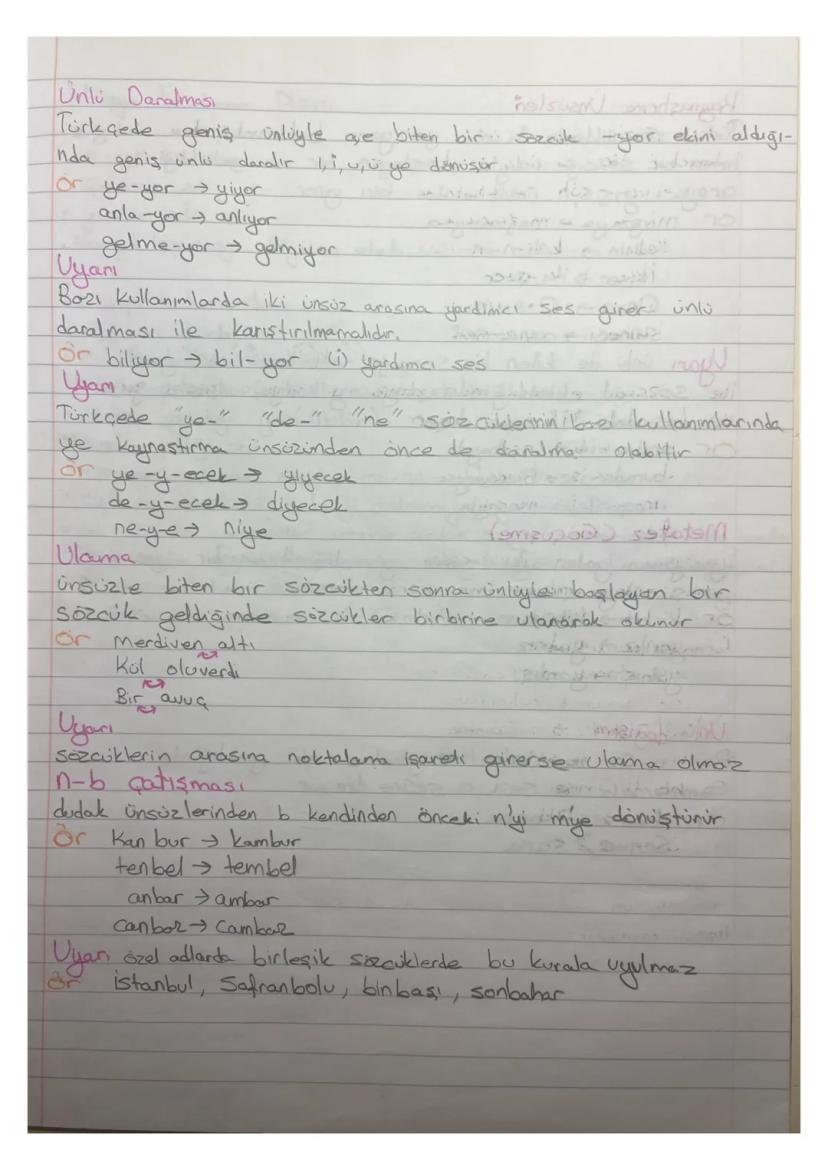 Ünlü Daralması
Türkçede geniş ünlüyle a,e biten bir sözcük -yor ekini aldığı-
nda geniş ünlü daralır ı,i,u,ü ye dönüşür
ör ye-yor → yiyor
anla-yor → anlıyor
gelme-yor → gelmiyor
Uyarı
Bazı kullanımlarda iki ünsüz arasına yardımcı ses girer ünlü
daralması ile karıştırılmamalıdır.
ör biliyor → bil-yor (i) yardımcı ses
Uyarı
Türkçede "ye-" "de-" "ne" sözcüklerinin bazı kullanımlarında
ye kaynaştırma ünsüzünden önce de daralma olabilir
ör ye-y-ecek → yiyecek
de-y-ecek → diyecek
ne-y-e → niye
Ulama
ünsüzle biten bir sözcükten sonra ünlüyle başlayan bir
sözcük geldiğinde sözcükler birbirine ulanarak okunur
ör Merdiven altı
Kül oluverdi
Bir avuç
Uyarı
sözcüklerin arasına noktalama işareti girerse ulama olmaz
n-b çatışması
dudak ünsüzlerinden b kendinden önceki n'yi m'ye dönüştürür
ör Kan bur → kambur
tenbel → tembel
anbar → ambar
canbaz → cambaz
Uyarı özel adlarda birleşik sözcüklerde bu kurala uyulmaz
ör istanbul, Safranbolu, binbaşı, sonbahar